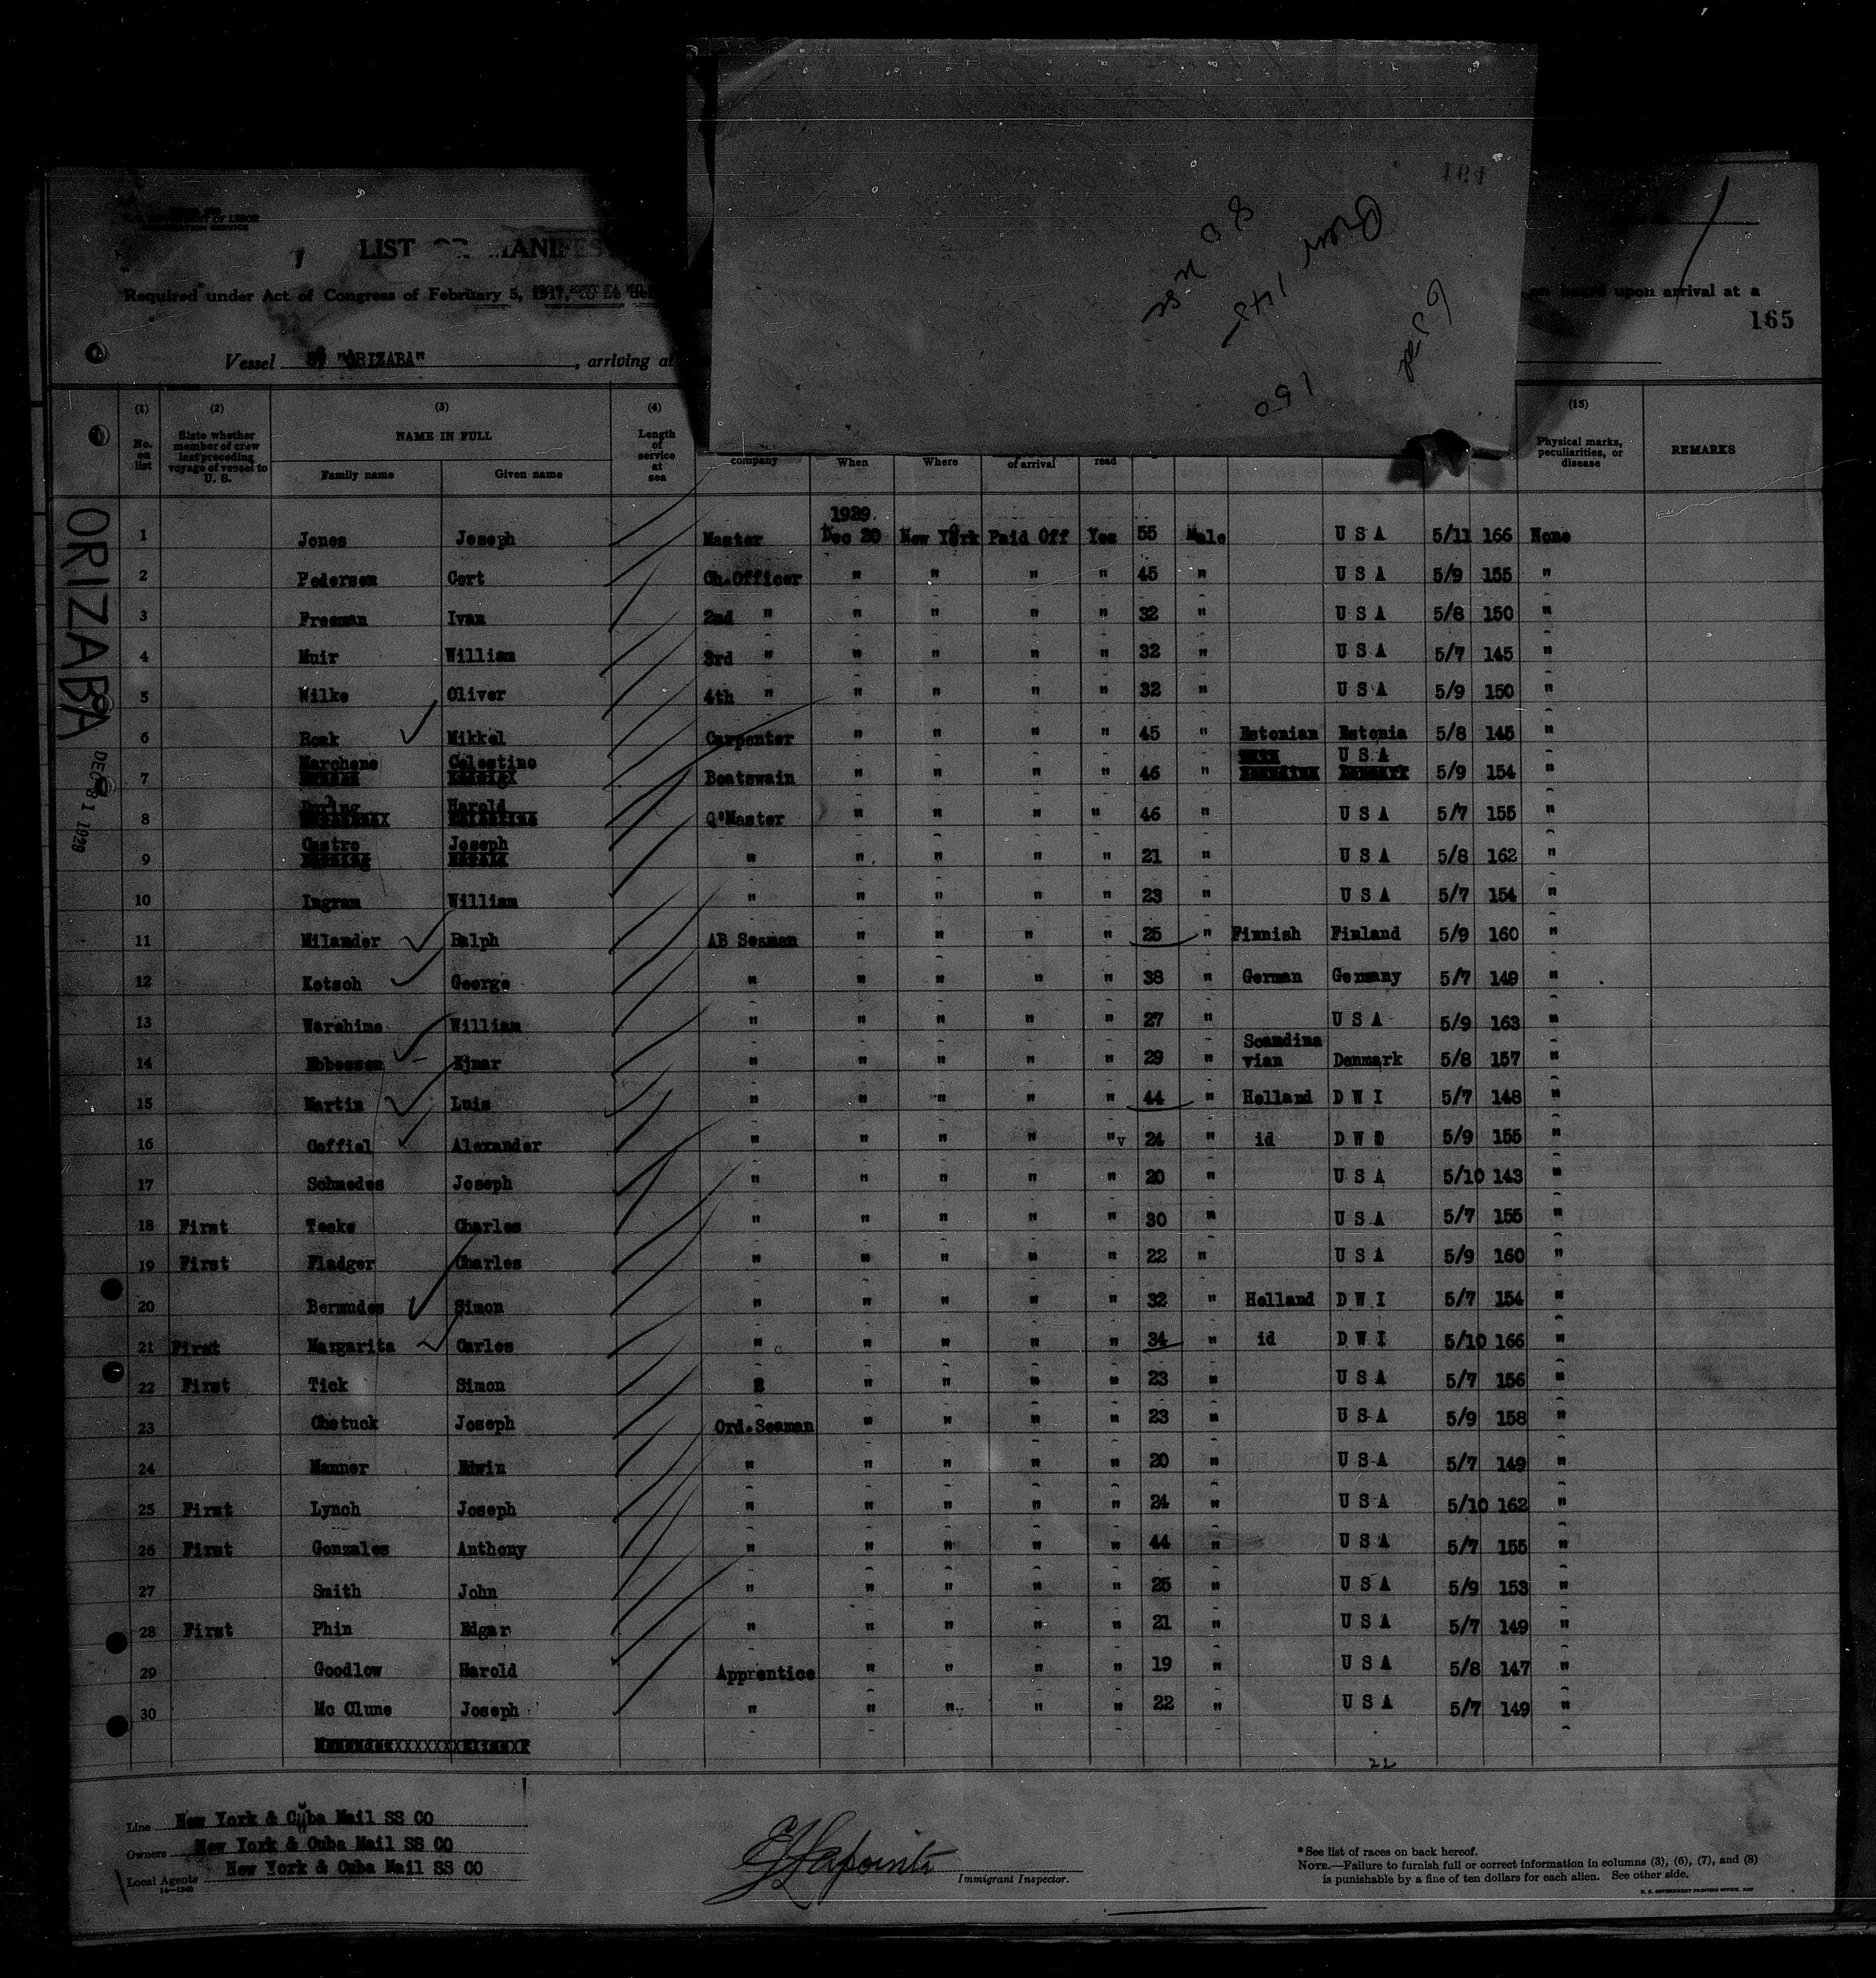 164
165
LIST OR MANIFES
Required under Act of Congress of February 5, 1917, to be del
on board upon arrival at a
Vessel SS "ORIZABA" , arriving at
ORIZABA
DEC 31 1929
(1) (2) (3) (4) (15)
No. on list State whether member of crew last preceding voyage of vessel to U. S. NAME IN FULL Family name Given name Length of service at sea company When Where of arrival read Physical marks, peculiarities, or disease REMARKS
1929
1 Jones Joseph Master Dec 20 New York Paid Off Yes 55 Male U S A 5/11 166 None
2 Pedersen Cort Ch.Officer " " " " 45 " U S A 5/9 155 "
3 Freeman Ivan 2nd " " " " " 32 " U S A 5/8 150 "
4 Muir William 3rd " " " " " 32 " U S A 5/7 145 "
5 Wilke Oliver 4th " " " " " 32 " U S A 5/9 150 "
6 Rosk Mikkel Carpenter " " " " 45 " Estonian Estonia 5/8 145 "
7 Marchene Celestino Boatswain " " " " 46 " U S A 5/9 154 "
8 During Harold Q'Master " " " " 46 " U S A 5/7 155 "
9 Castro Joseph " " " " " 21 " U S A 5/8 162 "
10 Ingram William " " " " " 23 " U S A 5/7 154 "
11 Milander Ralph AB Seaman " " " " 25 " Finnish Finland 5/9 160 "
12 Kotsch George " " " " " 38 " German Germany 5/7 149 "
13 Warehime William " " " " " 27 " U S A 5/9 163 "
14 Ebbessen Ejnar " " " " " 29 " Scandina vian Denmark 5/8 157 "
15 Martin Luis " " " " " 44 " Holland D W I 5/7 148 "
16 Coffiel Alexander " " " " " 24 " id D W I 5/9 155 "
17 Schmedes Joseph " " " " " 20 " U S A 5/10 143 "
18 First Teske Charles " " " " " 30 " U S A 5/7 155 "
19 First Fladger Charles " " " " " 22 " U S A 5/9 160 "
20 Bermudes Simon " " " " " 32 " Holland D W I 5/7 154 "
21 First Margarita Carles " " " " " 34 " id D W I 5/10 166 "
22 First Tick Simon " " " " 23 " U S A 5/7 156 "
23 Chetuck Joseph Ord.Seaman " " " " 23 " U S A 5/9 158 "
24 Manner Edwin " " " " " 20 " U S A 5/7 149 "
25 First Lynch Joseph " " " " " 24 " U S A 5/10 162 "
26 First Gonzales Anthony " " " " " 44 " U S A 5/7 155 "
27 Smith John " " " " " 25 " U S A 5/9 153 "
28 First Phin Edgar " " " " " 21 " U S A 5/7 149 "
29 Goodlow Harold Apprentice " " " " 19 " U S A 5/8 147 "
30 Mc Clune Joseph " " " " " 22 " U S A 5/7 149 "
22
Line New York & Cuba Mail SS CO
Owners New York & Cuba Mail SS CO
Local Agents New York & Cuba Mail SS CO
Immigrant Inspector.
* See list of races on back hereof.
NOTE.—Failure to furnish full or correct information in columns (3), (6), (7), and (8)
is punishable by a fine of ten dollars for each alien. See other side.